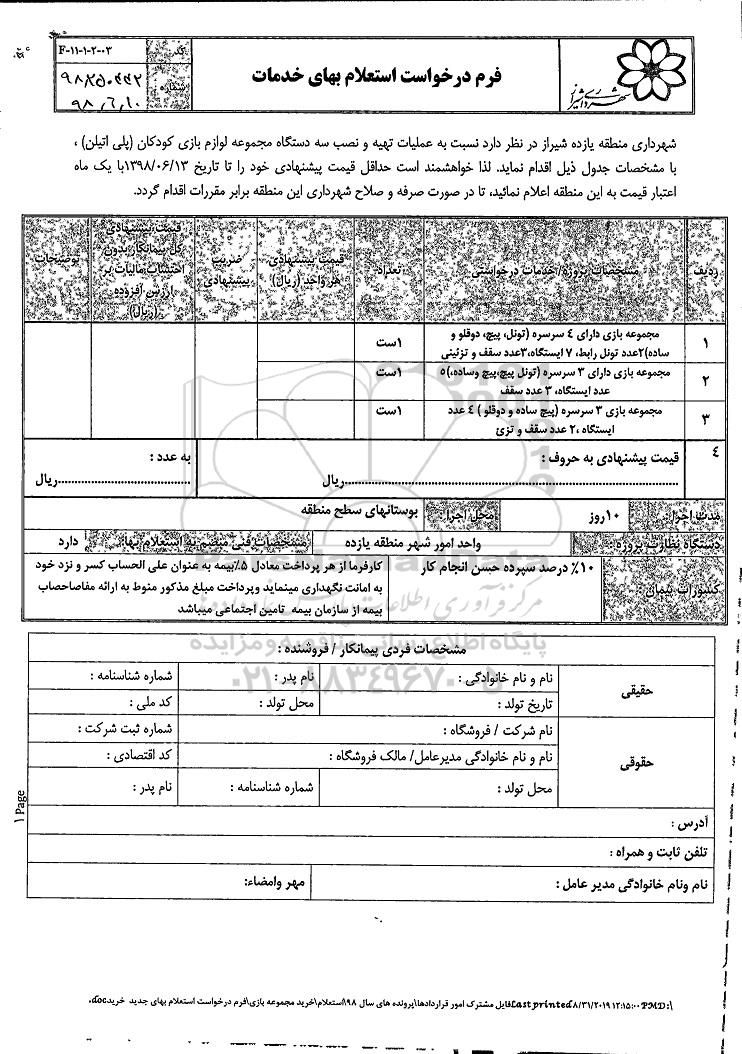 کد: F-۱۱-۱-۲-۰۳
شماره:
۹۸,۶,۱۰
فرم درخواست استعلام بهای خدمات
شهرداری شیراز
شهرداری منطقه یازده شیراز در نظر دارد نسبت به عملیات تهیه و نصب سه دستگاه مجموعه لوازم بازی کودکان (پلی اتیلن) ،
با مشخصات جدول ذیل اقدام نماید. لذا خواهشمند است حداقل قیمت پیشنهادی خود را تا تاریخ ۱۳۹۸/۰۶/۱۳با یک ماه
اعتبار قیمت به این منطقه اعلام نمائید، تا در صورت صرفه و صلاح شهرداری این منطقه برابر مقررات اقدام گردد.
ردیف
مشخصات پروژه/خدمات درخواستی
تعداد
قیمت پیشنهادی
هر واحد (ریال)
ضریب
پیشنهادی
قیمت پیشنهادی
کل پیمانکار بدون
احتساب مالیات بر
ارزش افزوده
(ریال)
توضیحات
۱
مجموعه بازی دارای ٤ سرسره (تونل، پیچ، دوقلو و
ساده)۲عدد تونل رابط، ۷ ایستگاه،۳عدد سقف و تزئینی
۱ست
۲
مجموعه بازی دارای ۳ سرسره (تونل پیچ،پیچ وساده،)٥
عدد ایستگاه، ۳ عدد سقف
۱ست
۳
مجموعه بازی ۳ سرسره (پیچ ساده و دوقلو ) ٤ عدد
ایستگاه ،۲ عدد سقف و تزئ
۱ست
٤
قیمت پیشنهادی به حروف :
به عدد :
ریال
ریال
مدت اجرا: ۱۰روز محل اجرا: بوستانهای سطح منطقه
دستگاه نظارت پروژه: واحد امور شهر منطقه یازده مشخصات فنی منضم به استعلام بها: دارد
کسورات پیمان :
۱۰٪ درصد سپرده حسن انجام کار
کارفرما از هر پرداخت معادل ۵٪بیمه به عنوان علی الحساب کسر و نزد خود
به امانت نگهداری مینماید وپرداخت مبلغ مذکور منوط به ارائه مفاصاحساب
بیمه از سازمان بیمه تامین اجتماعی میباشد
مرکز فرآوری اطلاعات
پایگاه اطلاع رسانی مناقصه و مزایده
۰۲۱-۸۸۳۴۹۶۷۰-۵
مشخصات فردی پیمانکار / فروشنده :
حقیقی
نام و نام خانوادگی : نام پدر : شماره شناسنامه :
تاریخ تولد : محل تولد : کد ملی :
حقوقی
نام شرکت / فروشگاه : شماره ثبت شرکت :
نام و نام خانوادگی مدیرعامل/ مالک فروشگاه : کد اقتصادی :
محل تولد : شماره شناسنامه : نام پدر :
آدرس :
تلفن ثابت و همراه :
نام ونام خانوادگی مدیر عامل : مهر وامضاء:
۱ Page
D:\فایل مشترک امور قراردادها\پرونده های سال ۹۸\استعلام\خرید مجموعه بازی\فرم درخواست استعلام بهای جدید خرید.doc Last printed ۸/۳۱/۲۰۱۹ ۱۲:۱۵:۰۰ PM